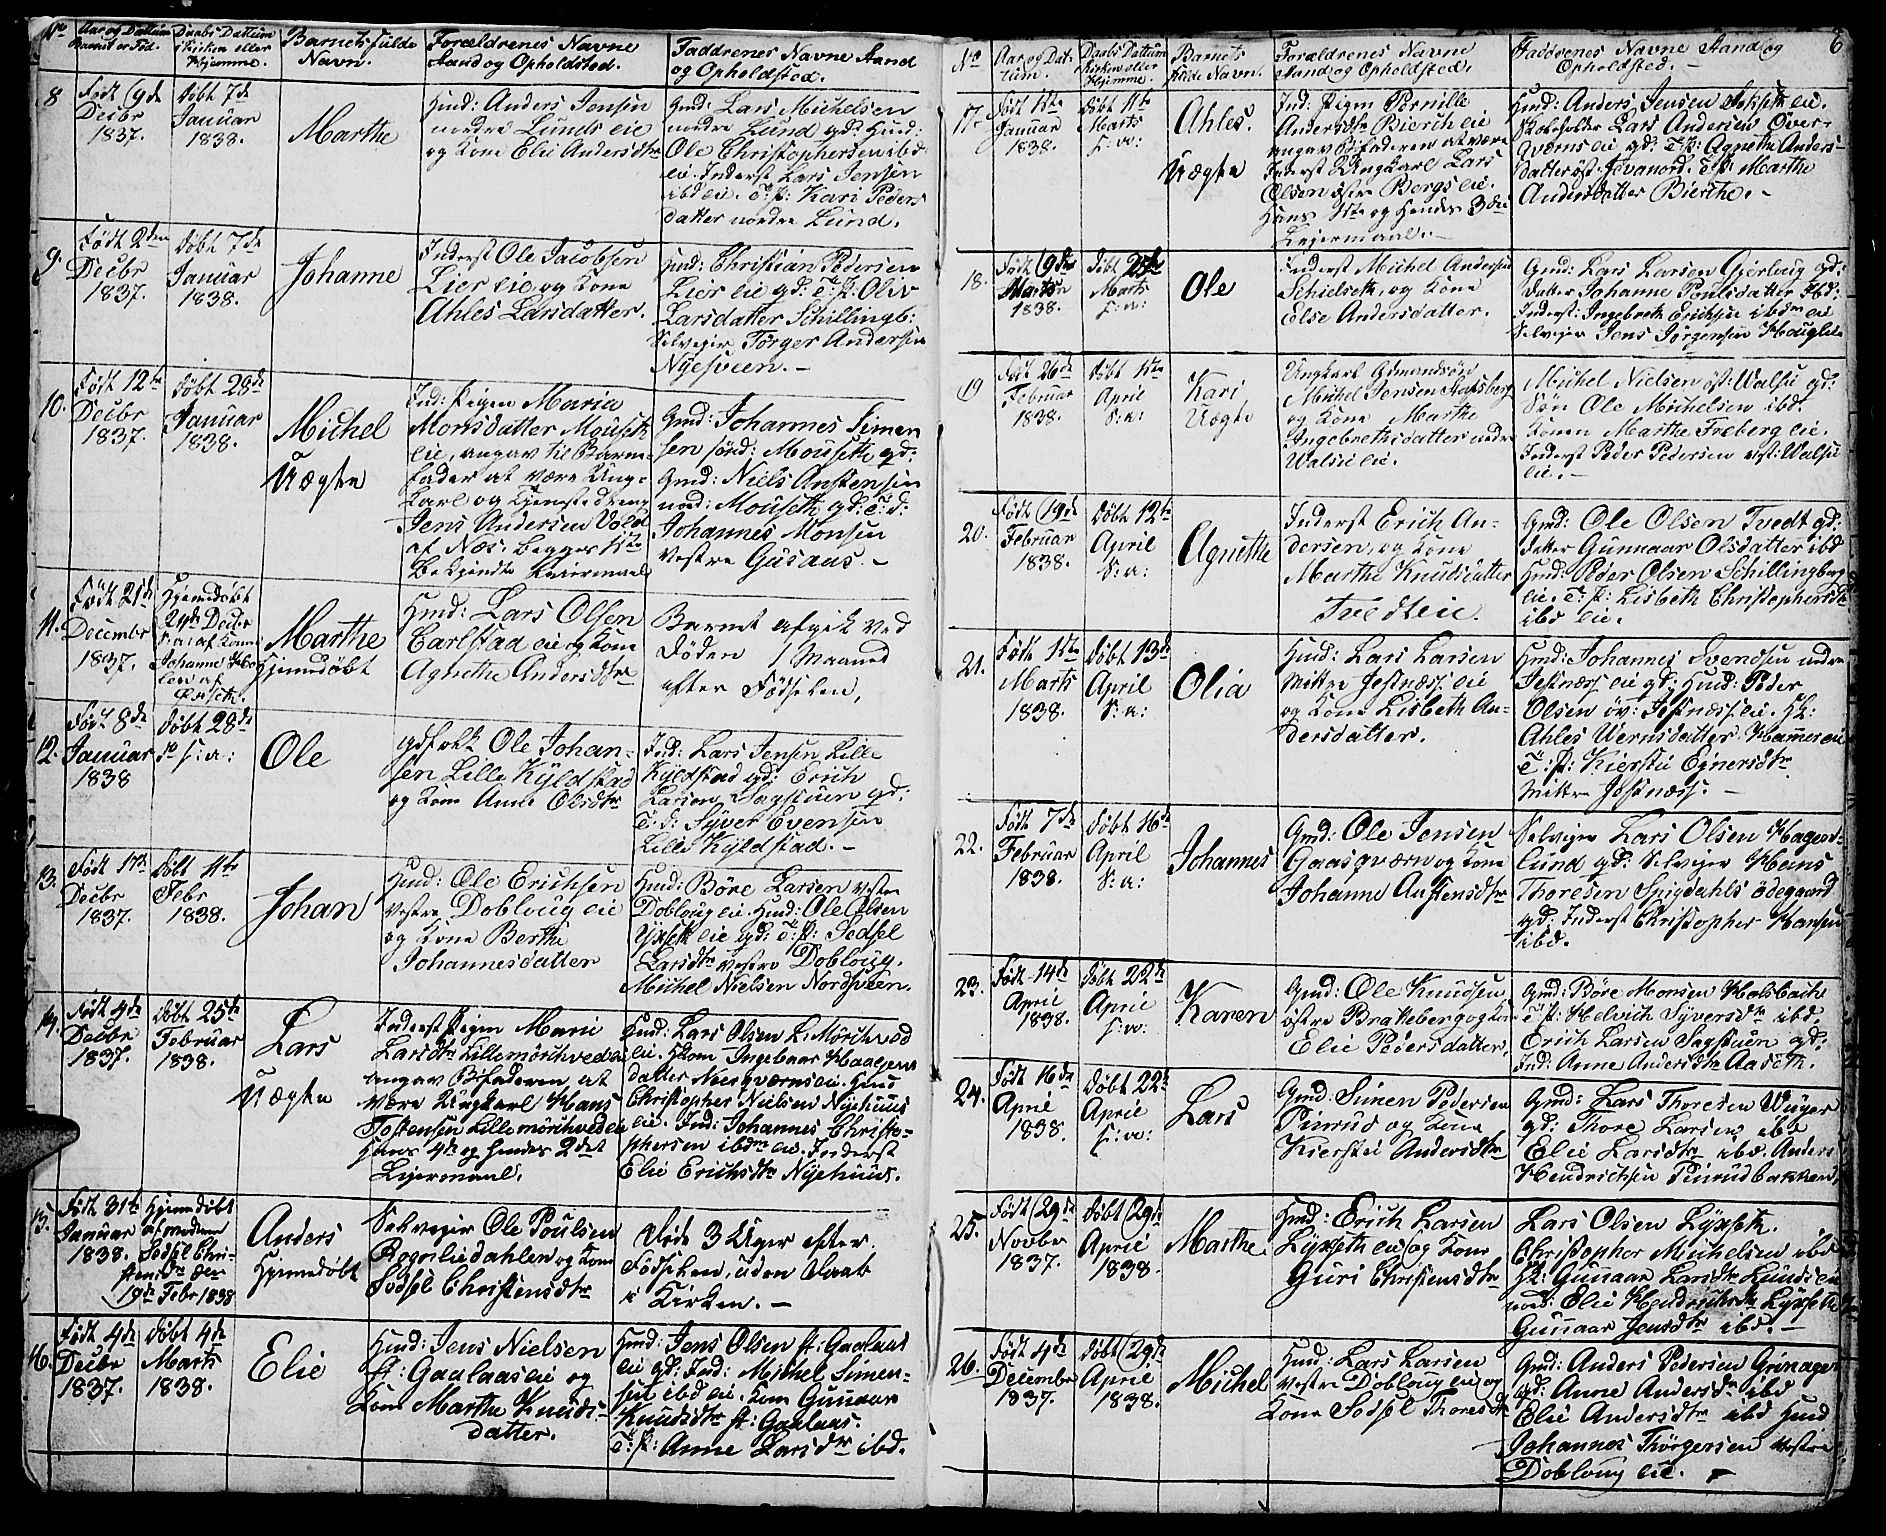 No
Aar og Dattum
Barnet er Fød.
Daabs Dattum
i Kirken eller
Hjemme.
Barnets fulde
Navn.
Forældrenes Navne
Stand og Opholdsted.
Faddrenes Navne Stand
og Opholdsted.
8
Født 9de
Decbr
1837.
Døbt 7de
Januar
1838.
Marthe
Hmd: Anders Jensen
nordre Lunds eie
og Kone Elie Andersdtr
Gmd: Lars Michelsen
nordre Lund gd: Hmd:
Ole Christophersen ibd:
eie. Inderst Lars Jensen
ibd eie. T: P: Kari Peders
datter nordre Lund.
9.
Født 2den
Decbr
1837.
Døbt 7de
Januar
1838.
Johanne
Inderst Ole Jacobsen
Lier eie og Kone
Ahles Larsdatter.
Hmd: Christian Pedersen
Lier eie gd: T: P: Oliv
Larsdatter Schillingb:
Selveier Torger Andersen
Nyesveen. -
10.
Født 12te
Decbr
1837.
Døbt 28de
Januar
1838.
Michel
Uægte
Ind: Pigen Maria
Monsdatter Mouseth
eie, angav til Barne
fader at være Ung-
Karl og Tjenestedreng
Jens Andersen Vold
af Næs. Begges 1ste
Bekjendte Leiermaal
Gmd: Johannes Simen
sen sønd: Mouseth gd:
Gmd: Niels Anstensen
nord: Mouseth gd: T: d:
Johannes Monsen
Vestre Gusaas. -
11.
Født 21de
Decembr
1837.
Hjemdøbt
24de Decbr
S: a: af Konen
Johanne
Marthe
Hjemdøbt
Hmd: Lars Olsen
Carlstad eie og Kone
Agnethe Andersdtr
Barnet afgik ved
Døden 1 Maaned
efter Fødselen,
12.
Født 8de
Januar
1838
Døbt 28de
do s: a:
Ole
Gdfolk Ole Johan-
sen Lille Kyldstad
og Kone Anne Olsdtr
Ind: Lars Jensen Lille
Kyldstad gd: Erich
Larsen Sagstuen gd:
T: d: Syver Evensen
Lille Kyldstad. -
13.
Født 17de
Decbr
1837.
Døbt 11te
Febr
1838.
Johan
Hmd: Ole Erichsen
Vestre Dobloug eie
og Kone Berthe
Johannesdatter
Hmd: Børe Larsen Vestre
Dobloug eie. Hmd: Ole Olsen
Lyxseth eie gd: T: P: Sedsel
Larsdtr Vestre Dobloug.
Michel Nielsen Nordsveen.
14.
Født 4de
Decbr
1837.
Døbt 25te
Februar
1838.
Lars
Uægte
Inderst Pigen Marie
Larsdtr Lillemørchved eie
angav B:faderen at
være Ungkarl Hans
Jostensen Lillemørchved eie
Hans 4de og Hendes 2det
Leiermaal.
Hmd: Lars Olsen L: Mørchved
eie. HKone Ingebaar Haagens
datter Næsqværns eie. Hmd
Christopher Nielsen Nyehuus
eie. Ind: Johannes Christo-
phersen ibdm eie. Inderst
Elie Erichsdtr Nyehuus.
15.
Født 31te
Januar
1838.
Hjemdøbt
af Moderen
Sedsel Chri-
stensdtr den
19de Febr 1838
Anders
Hjemdøbt
Selveier Ole Poulsen
Rognliedahlen og Kone
Sedsel Christensdtr
Døde 3 Uger efter
Fødselen, uden Daab
i Kirken. -
16.
Født 4de
Decbr
1837.
Døbt 4de
Marts
1838.
Elie
Hmd: Jens Nielsen
st: Gaalaas eie og
Kone Marthe Knuds-
datter.
Hmd: Jens Olsen st: Gaalaas
eie gd: Ind: Michel Simen-
sen ibd eie. Kone Gunnaar
Knudsdtr st: Gaalaas.
T: P: Anne Larsdr ibd.
6
No
Aar og Dat-
tum.
Daabs Dattum
i Kirken eller
Hjemme.
Barnets
fulde Navn.
Forældrenes Navne
Stand og Opholdsted.
Faddrenes Navne Stand og
Opholdsted. -
17.
Født 1ste
Januar
1838.
Døbt 11te
Marts
s: a:
Ahles.
Uægte
Ind: Pigen Pernille
Andersdtr Bierche eie
angav B:faderen at være
Inderst Ungkarl Lars
Olsen østre Bergs eie.
Hans 1ste og Hendes 3die
Leiermaal. -
Hmd: Anders Jensen eie.
Skoleholder Lars Andersen Over-
qværns eie gd: T: P: Agnethe Anders-
datter øst: Jevanord. T: P: Marthe
Andersdatter Bierche. -
18.
Født 9de
1838.
Døbt 25de
Marts
s: a:
Ole
Inderst Michel Andersen
Schielseth, og Kone
Else Andersdatter.
Gmd: Lars Larsen Gjerlaug gd:
datter Johanne Poulsdatter Ibd:
Inderst: Ingebreth Erichsen ibdm eie
Selveier Jens Jørgensen
19
Født 26de
Februar
1838.
Døbt 1ste
April
S: a:
Kari
Uægte
Ungkarl Gdmandsøn
Michel Jensen
og Kone Marthe
Ingebrethsdatter nedre
Walsie eie.
Michel Nielsen øst: Walsie gd:
Søn Ole Michelsen ibd.
Konen Marthe Freberg eie.
Inderst Peder Pedersen øst: Walsie
eie. -
20.
Født 19de
Februar
1838.
Døbt 12te
April
S: a:
Agnethe
Inderst Erich An-
dersen, og Kone
Marthe Knudsdatter
Tvedt eie.
Gmd: Ole Olsen Tvedt gd:
datter Gunnaar Olsdatter ibd
Hmd: Peder Olsen Schillingberg
eie. T: P: Lisbeth Christophersdtr
ibd eie.
21.
Født 1ste
Marts
1838.
Døbt 13de
April
S: a:
Olia
Hmd: Lars Larsen
Mittre Jesnæss eie
og Kone Lisbeth An-
dersdatter.
Hmd: Johannes Svendsen nedre
Jesnæss eie gd: Hmd: Peder
Olsen øv: Jesnæss eie. HK:
Ahles Wernsdatter Hammer eie
T: P: Kierstie Egnersdtr
Mittre Jesnæss. -
22.
Født 7de
Februar
1838.
Døbt 16de
April
S: a:
Johannes
Gmd: Ole Jensen
Gaasqværn og Kone
Johanne Anstensdtr
Selveier Lars Olsen Hagens-
lund gd: Selveier Hans
Thoresen Spigdahls ødegaard
gd: Inderst Christopher Hansen
ibd.
23.
Født 14de
April
1838.
Døbt 22de
April
s: a:
Karen
Gmd: Ole Knudsen
østre Brakeberg og Kone
Elie Pedersdatter.
Gmd: Børe Monsen Holsbache
T: P: Helvich Syversdtr ibd
Erich Larsen Sagstuen gd:
Ind: Anne Andersdtr Aaseth.
24.
Født 16de
April
1838.
Døbt 22de
April
s: a:
Lars
Gmd: Simen Pedersen
Pinrud og Kone
Kierstie Andersdtr
Gmd: Lars Thoresen Wiiger
gd: Thore Larsen ibd
Elie Larsdtr ibd. Anders
Hendrichsen Pinrudbakken,
25.
Født 29de
Novbr
1837.
Døbt 29de
April
1838.
Marthe
Hmd: Erich Larsen
Lyxseth eie og Kone
Guri Christensdtr
Lars Olsen Lyxseth.
Christopher Michelsen ibd
HK: Gunnaar Larsdtr Lunds eie
nord: Elie Hendrichsdtr Lyxseth
Gunnaar Jensdtr ibd. -
26.
Født 4de
December
1837.
Døbt 29de
April
1838.
Michel
Hmd: Lars Larsen
Vestre Dobloug eie og
Kone Sedsel Thoresdtr
Gmd: Anders Pedersen Grimager
gd: Anne Andersdtr ibd
Elie Andersdtr ibd Hmd
Johannes Thorgersen Vestre
Dobloug eie. -